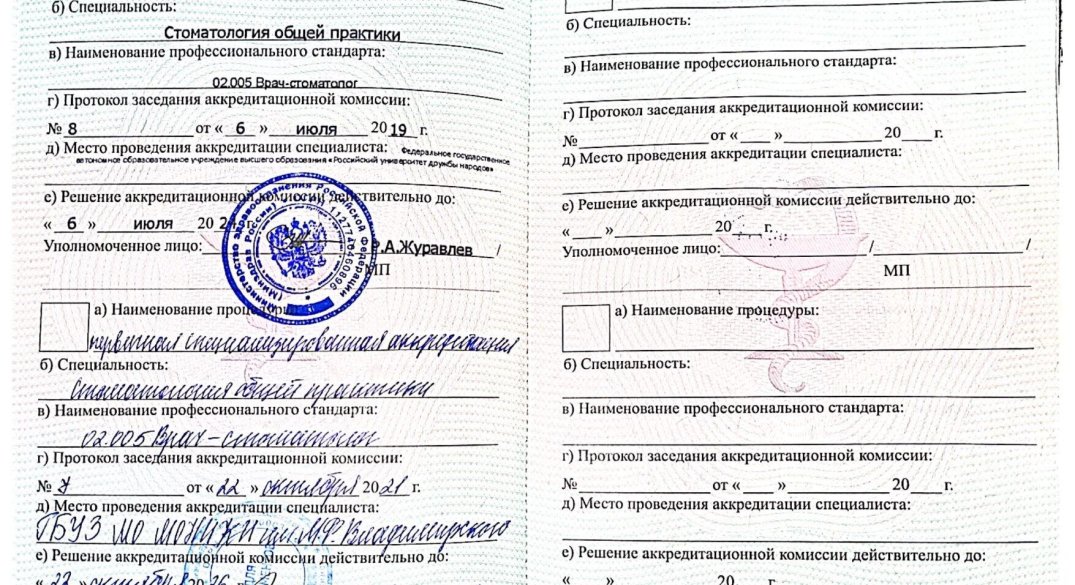 б) Специальность:
Стоматология общей практики
в) Наименование профессионального стандарта:
02.005 Врач-стоматолог
г) Протокол заседания аккредитационной комиссии:
№ 8 от « 6 » июля 2019 г.
д) Место проведения аккредитации специалиста: Федеральное государственное
автономное образовательное учреждение высшего образования «Российский университет дружбы народов»
е) Решение аккредитационной комиссии действительно до:
« 6 » июля 2024 г.
Уполномоченное лицо: А.Журавлев /
МП
Министерство здравоохранения Российской Федерации
(Минздрав России)
1127746460896
а) Наименование процедуры:
первичная специализированная аккредитация
б) Специальность:
Стоматология общей практики
в) Наименование профессионального стандарта:
02.005 Врач-стоматолог
г) Протокол заседания аккредитационной комиссии:
№ от « 22 » октября 2021 г.
д) Место проведения аккредитации специалиста:
ГБУЗ МО МОНИКИ им. М.Ф. Владимирского
е) Решение аккредитационной комиссии действительно до:
« 22 » октября 2026
б) Специальность:
в) Наименование профессионального стандарта:
г) Протокол заседания аккредитационной комиссии:
№ от « » 20 г.
д) Место проведения аккредитации специалиста:
е) Решение аккредитационной комиссии действительно до:
« » 20 г.
Уполномоченное лицо: / /
МП
а) Наименование процедуры:
б) Специальность:
в) Наименование профессионального стандарта:
г) Протокол заседания аккредитационной комиссии:
№ от « » 20 г.
д) Место проведения аккредитации специалиста:
е) Решение аккредитационной комиссии действительно до:
« » 20 г.